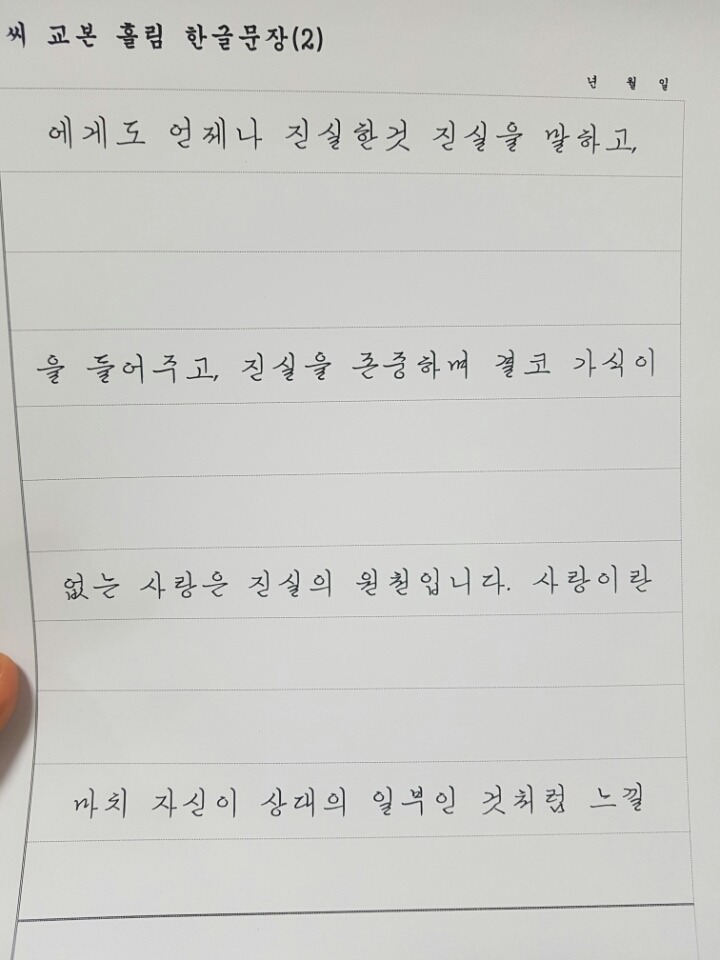 씨 교본 흘림 한글문장(2)
년 월 일
에게도 언제나 진실한것 진실을 말하고,
을 들어주고, 진실을 존중하며 결코 가식이
없는 사랑은 진실의 원철입니다. 사랑이란
마치 자신이 상대의 일부인 것처럼 느낄